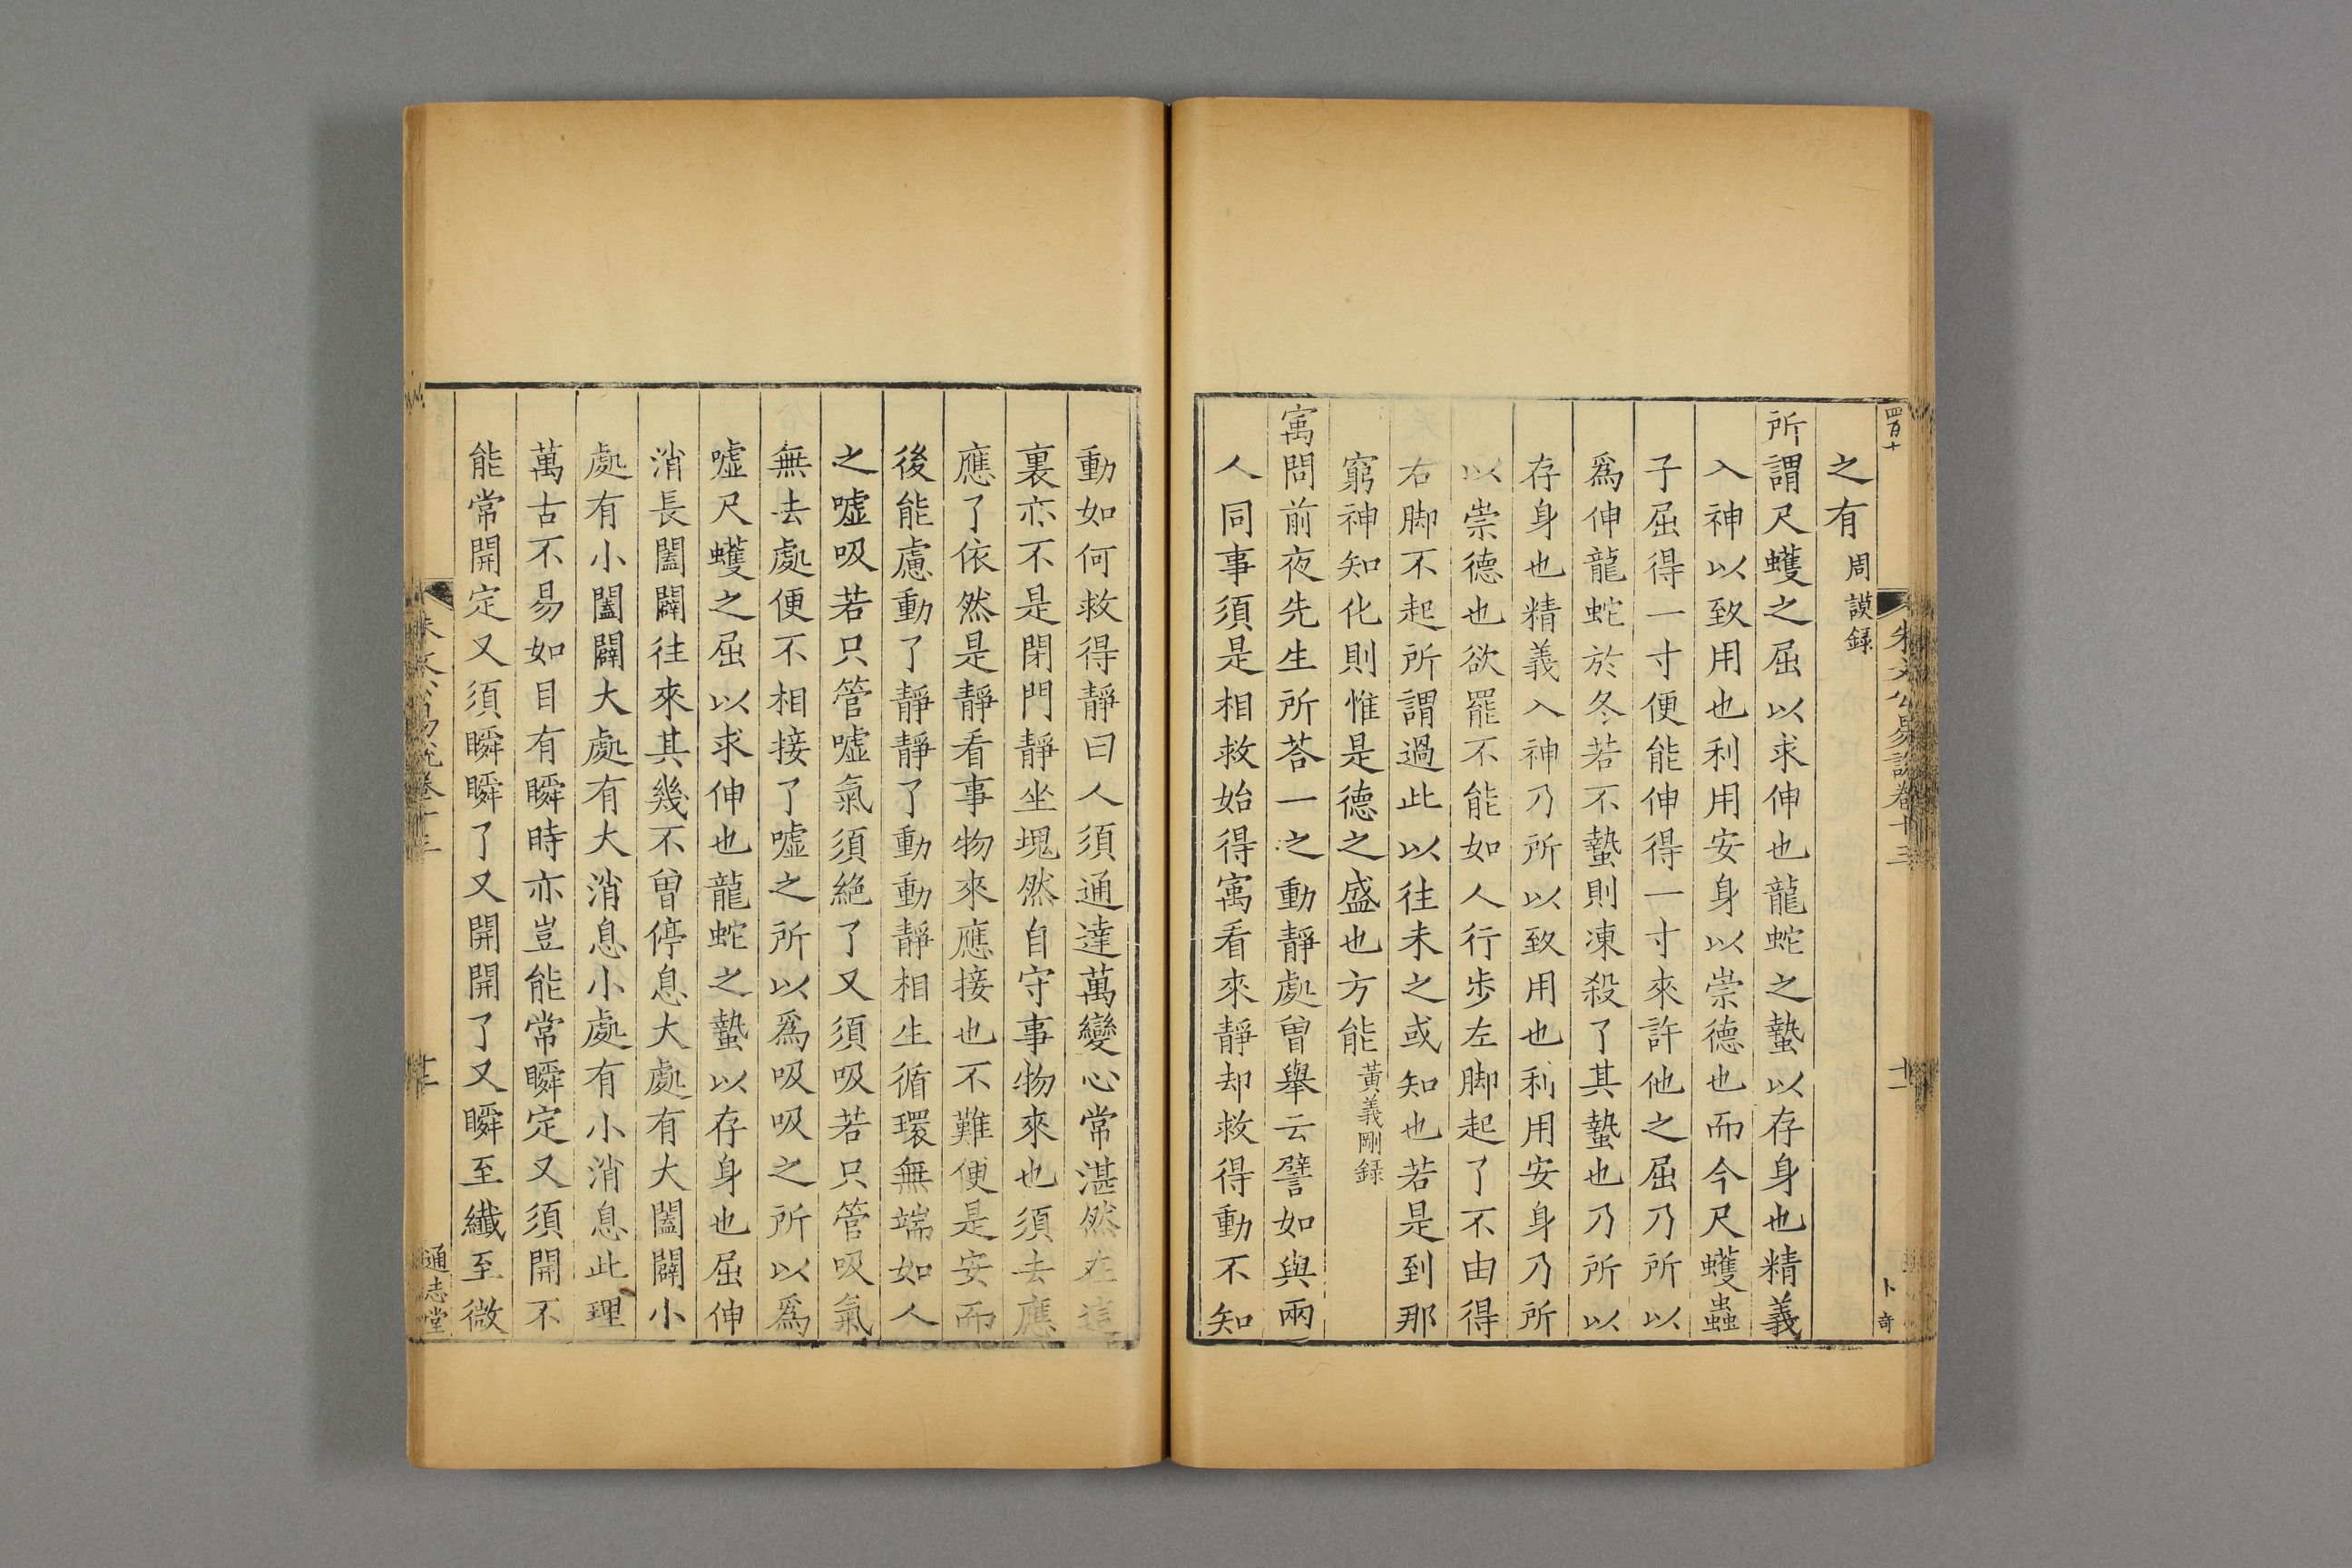 四百十
朱文公易說卷十三
十二
卜奇
之有周謨録
所謂尺蠖之屈以求伸也龍蛇之蟄以存身也精義
入神以致用也利用安身以崇德也而今尺蠖蟲
子屈得一寸便能伸得一寸來許他之屈乃所以
爲伸龍蛇於冬若不蟄則凍殺了其蟄也乃所以
存身也精義入神乃所以致用也利用安身乃所
以崇德也欲罷不能如人行步左脚起了不由得
右脚不起所謂過此以往未之或知也若是到那
窮神知化則惟是德之盛也方能黃義剛録
㝢問前夜先生所荅一之動靜處曾舉云譬如與兩
人同事須是相救始得㝢看來靜却救得動不知
動如何救得靜曰人須通達萬變心常湛然在這
裏亦不是閉門靜坐塊然自守事物來也須去應
應了依然是靜看事物來應接也不難便是安而
後能慮動了靜靜了動動靜相生循環無端如人
之噓吸若只管噓氣須絶了又須吸若只管吸氣
無去處便不相接了噓之所以爲吸吸之所以爲
噓尺蠖之屈以求伸也龍蛇之蟄以存身也屈伸
消長闔闢往來其幾不曾停息大處有大闔闢小
處有小闔闢大處有大消息小處有小消息此理
萬古不易如目有瞬時亦豈能常瞬定又須開不
能常開定又須瞬瞬了又開開了又瞬至纖至微
朱文公易說卷十三
通志堂